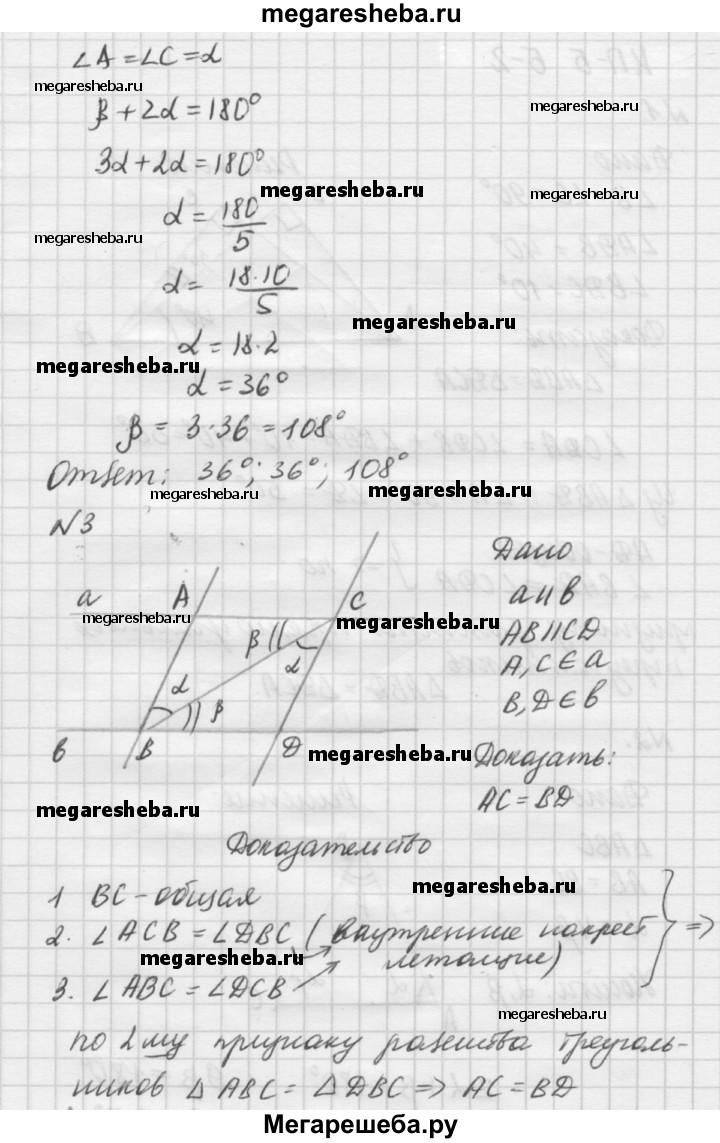 megaresheba.ru
∠A = ∠C = α
megaresheba.ru
β + 2α = 180°
megaresheba.ru
3α + 2α = 180°
megaresheba.ru
megaresheba.ru
α = 180/5
megaresheba.ru
α = 18·10/5
megaresheba.ru
α = 18·2
megaresheba.ru
megaresheba.ru
α = 36°
β = 3·36 = 108°
Ответ: 36°; 36°; 108°
megaresheba.ru
megaresheba.ru
№3
Дано
a A C
a || в
megaresheba.ru
β α
AB || CD
A, C ∈ a
α β
B, D ∈ в
в B D
megaresheba.ru
Доказать:
megaresheba.ru
AC = BD
Доказательство
1 BC - общая
megaresheba.ru
2. ∠ACB = ∠DBC (внутренние накрест
megaresheba.ru
лежащие)
3. ∠ABC = ∠DCB
⇒
megaresheba.ru
по 2му признаку равенства треуголь-
ников △ABC = △DBC ⇒ AC = BD
Мегарешеба.ру